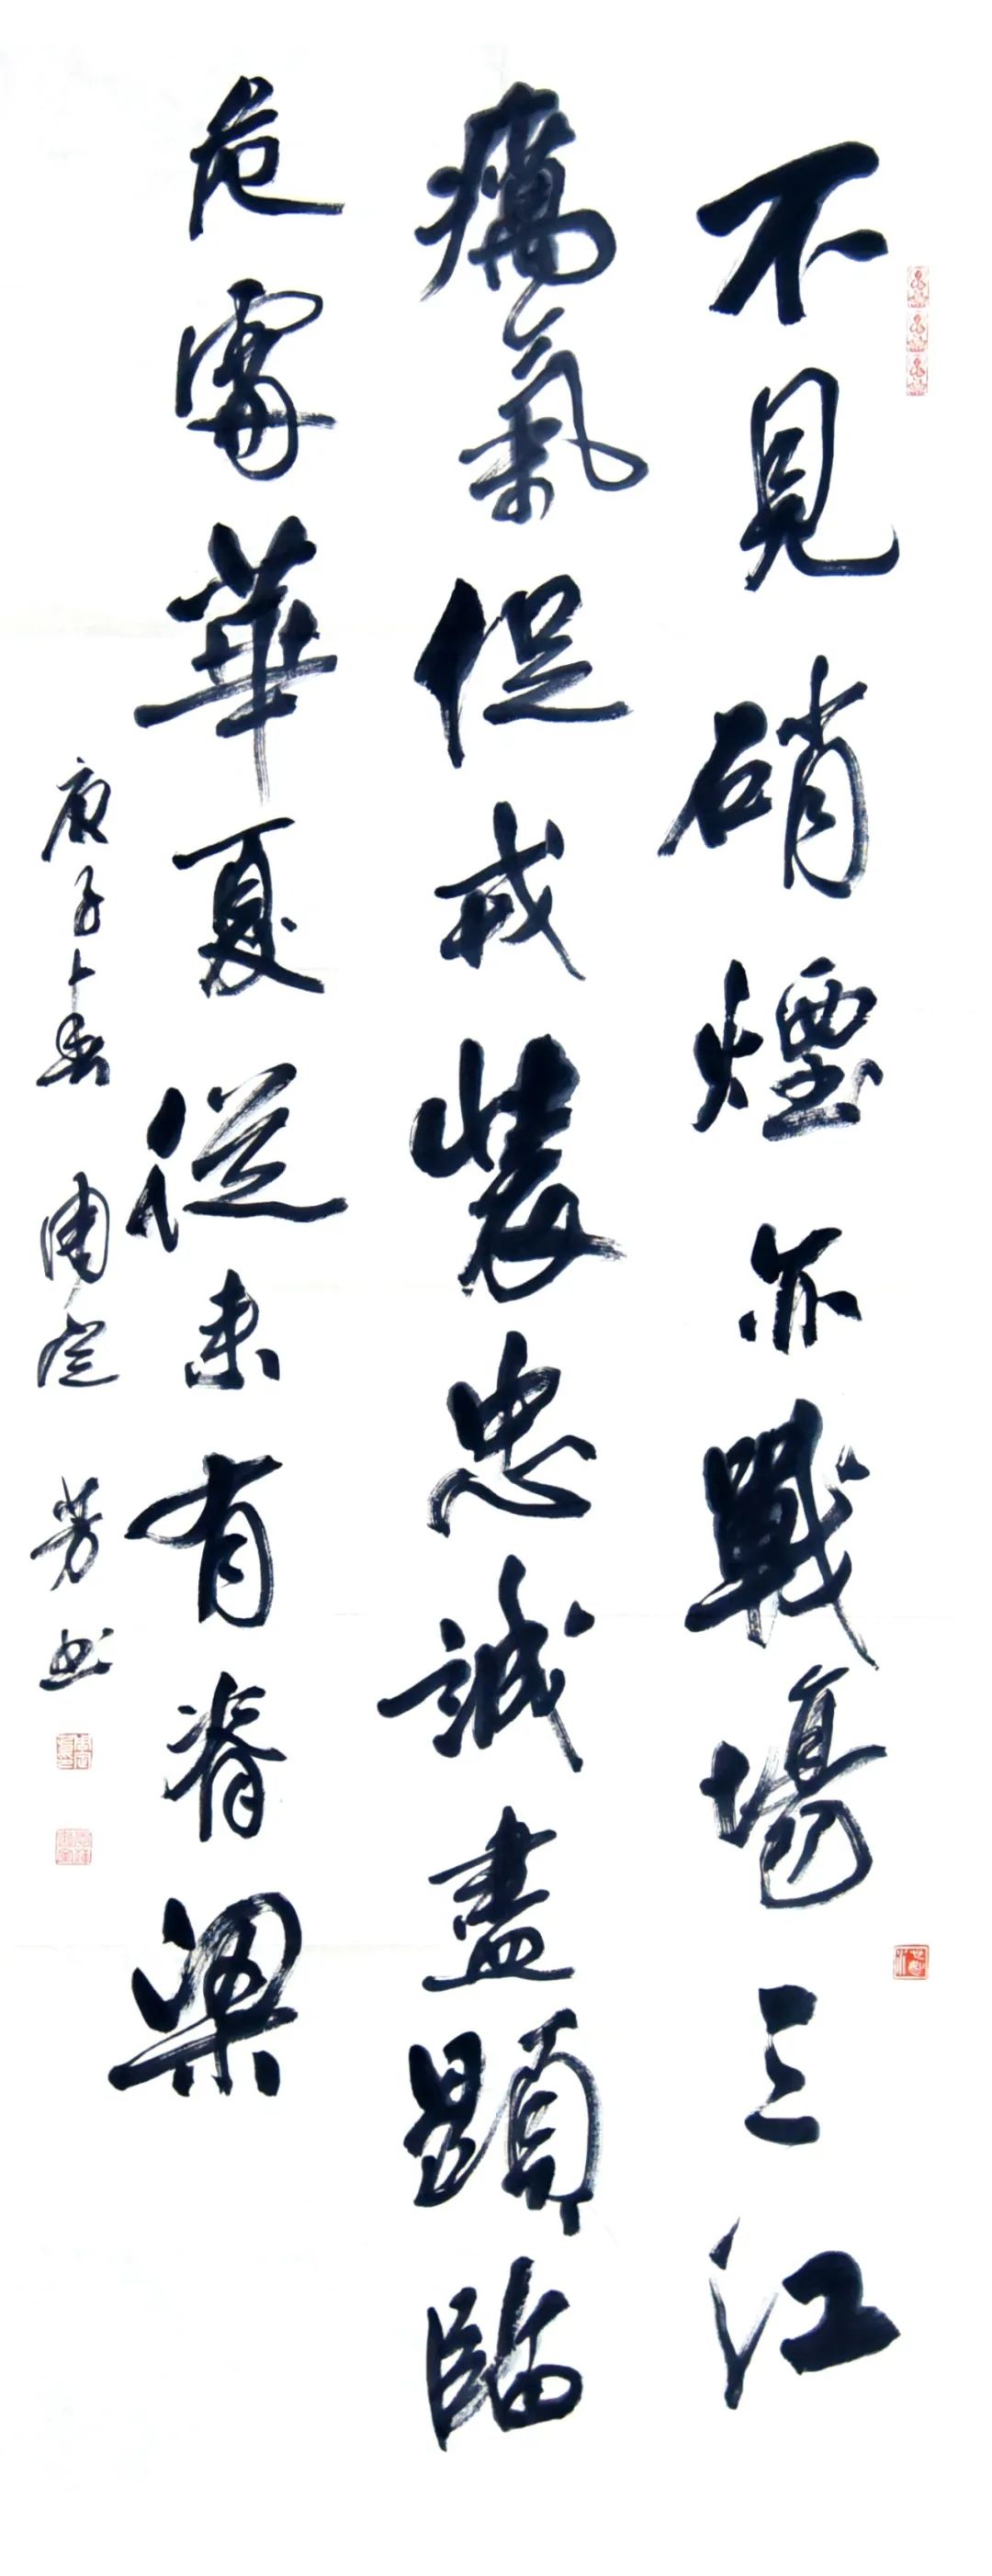 不見硝煙亦戰場三江
癘氣促戎裝忠誠盡顯臨
危處華夏從來有脊梁
庚子上春 周定芳书